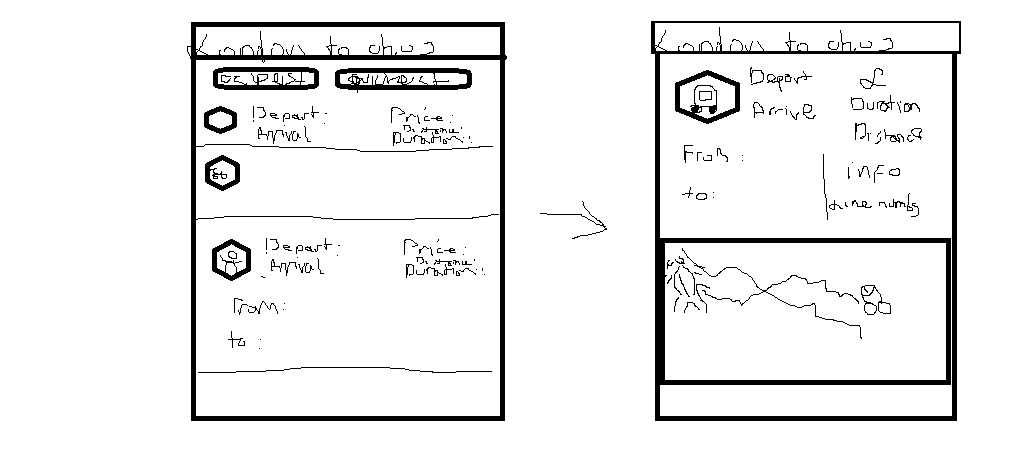 London to
cheapest quickest
Depart:
Arrival
Price:
Distance:
Duration:
Depart:
Arrival
Price:
Distance:
Duration:
From:
to:
London to
Depart
Arrive
£
Duration
Distance
From:
to:
info
Line number